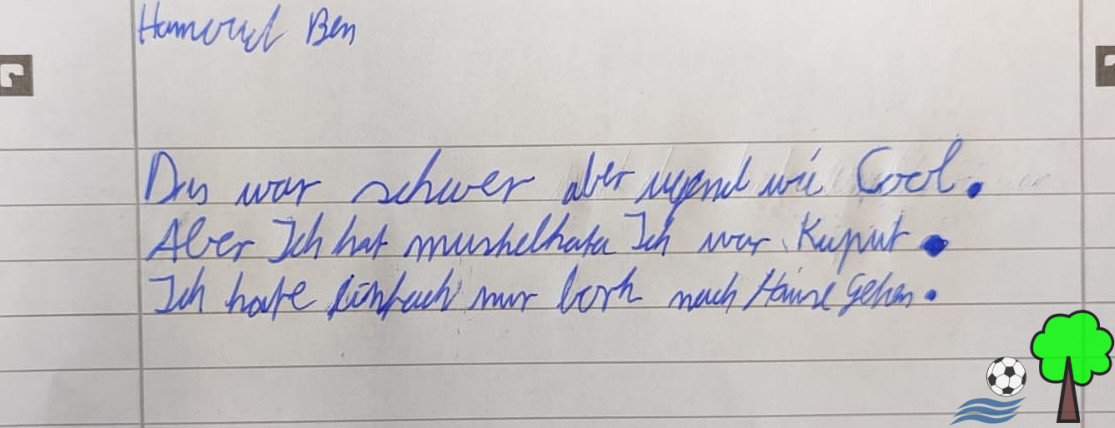 Ben
Das war schwer aber irgend wie Cool.
Aber Ich hat muskelkata Ich war Kaput.
Ich hate einfach nur bork nach Hause gehen.